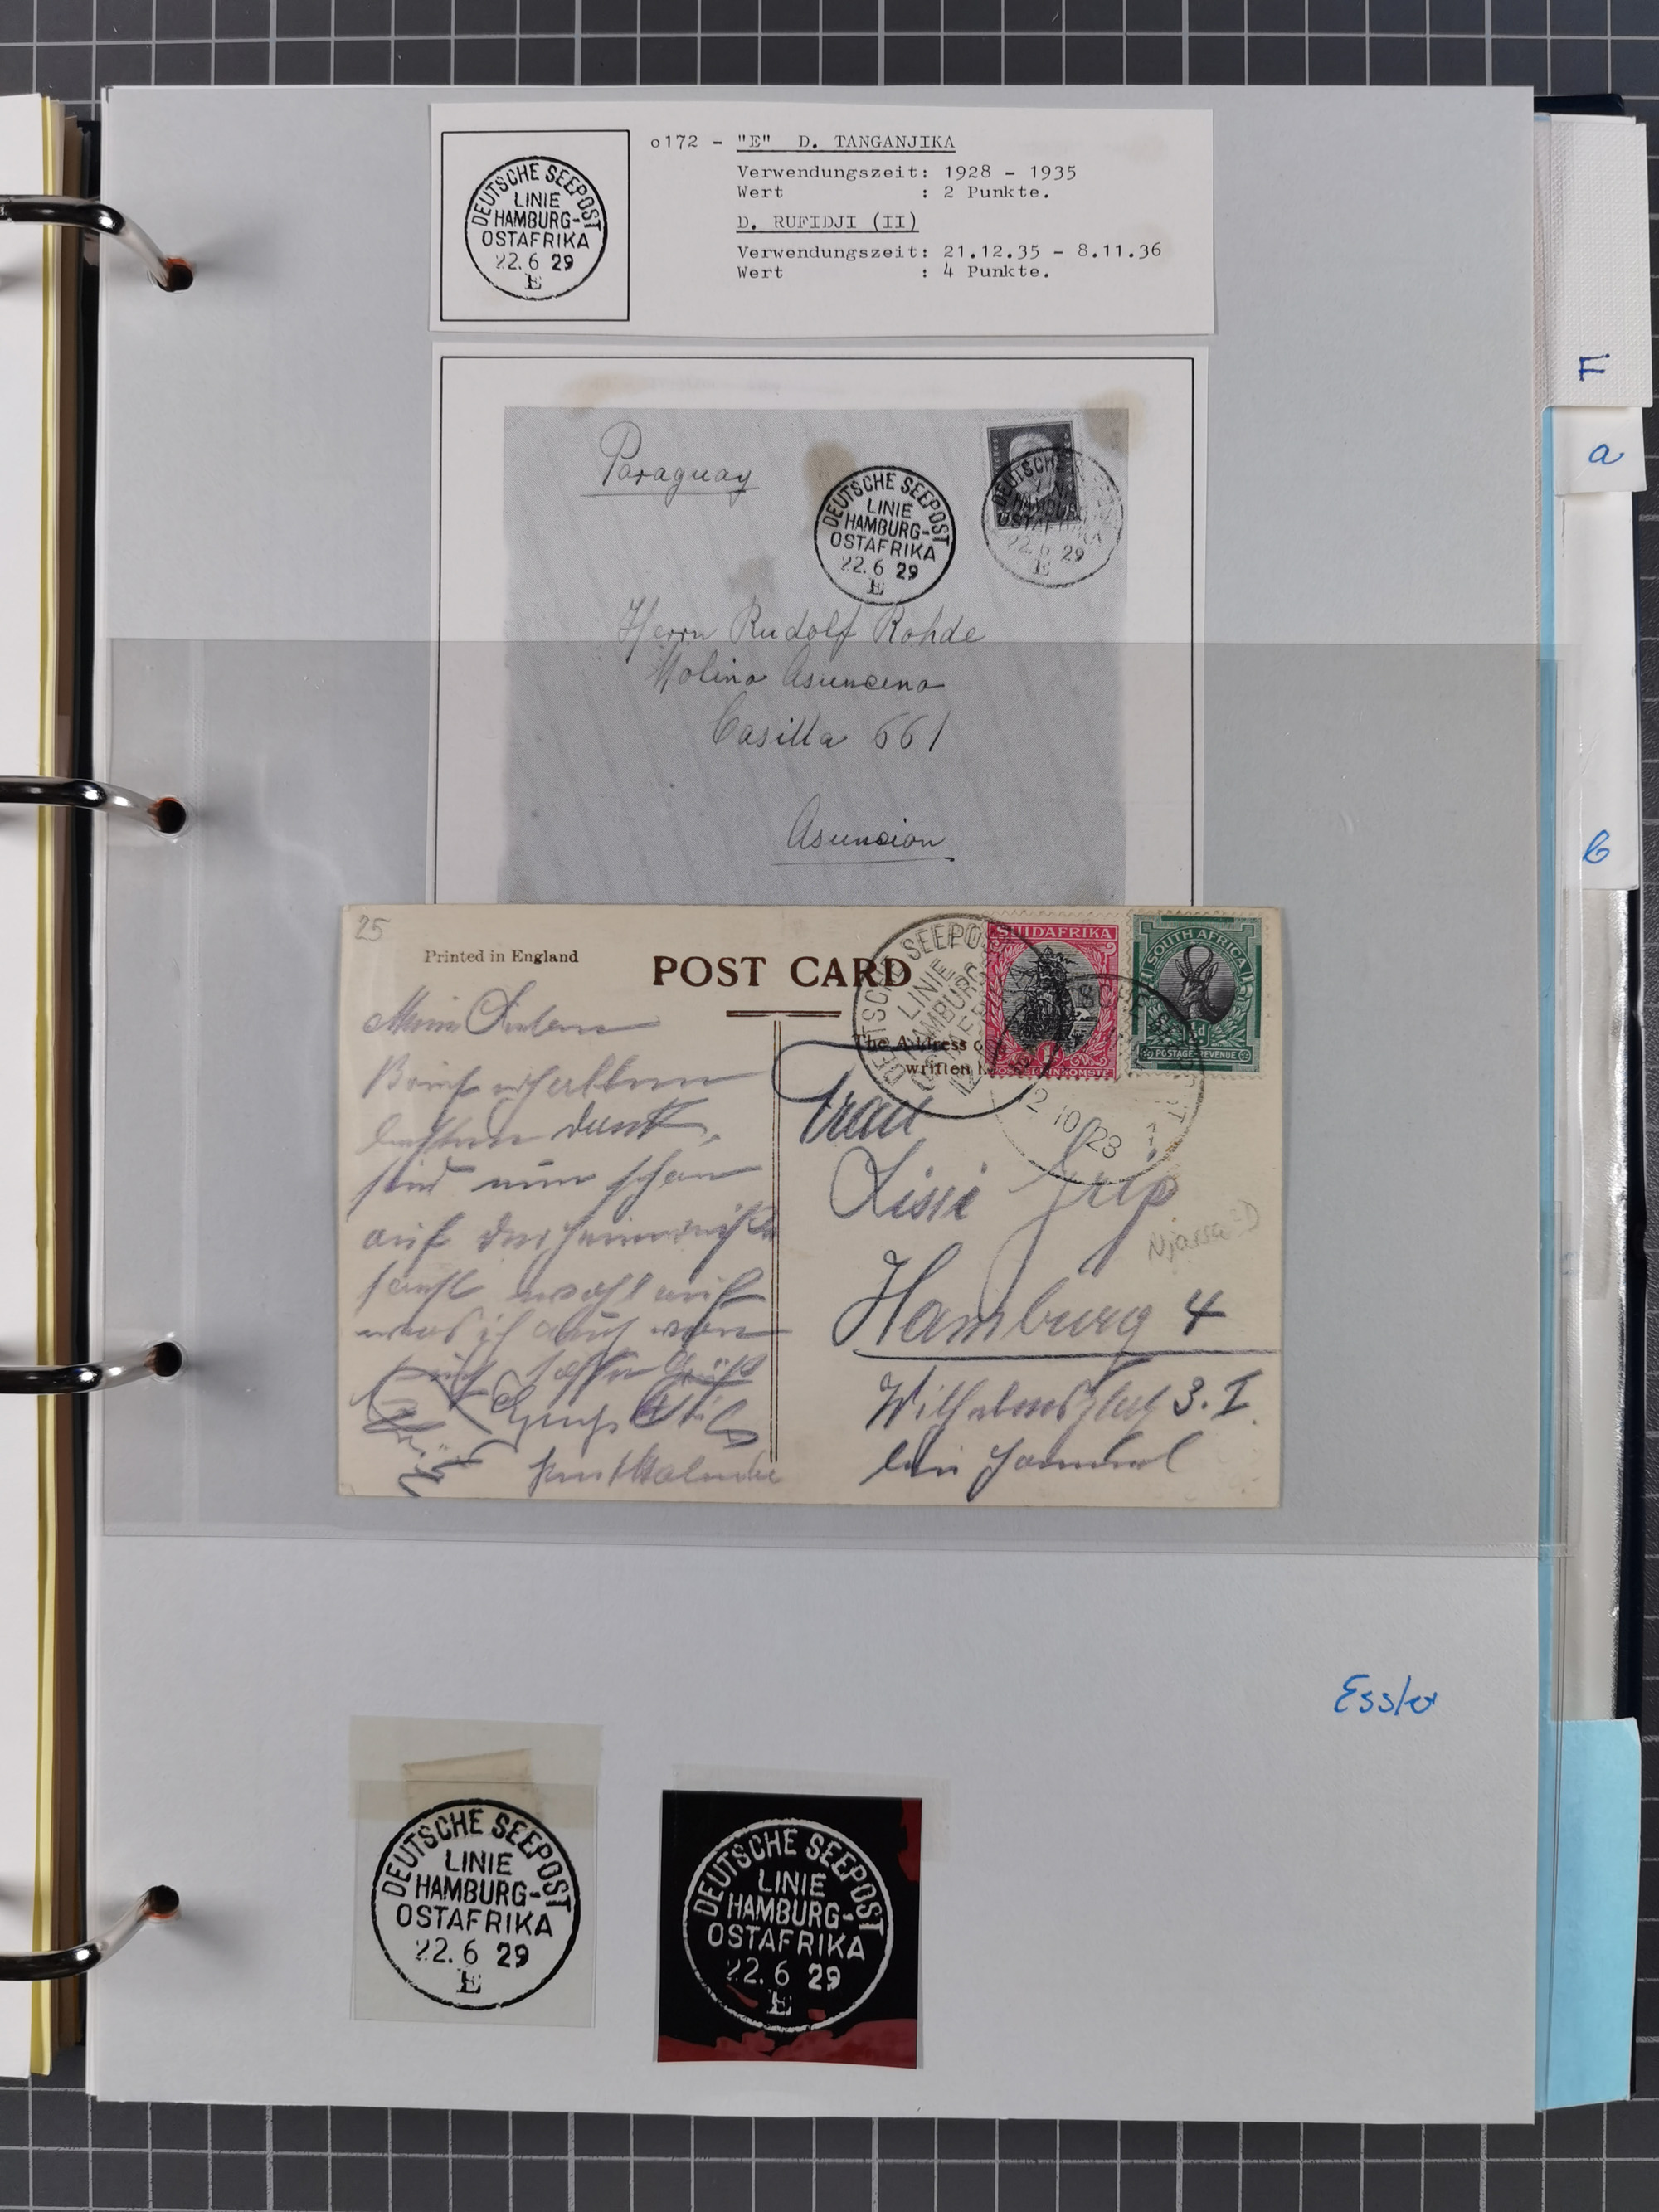 o172 - "E" D. TANGANJIKA
Verwendungszeit: 1928 - 1935
Wert : 2 Punkte.
D. RUFIDJI (II)
Verwendungszeit: 21.12.35 - 8.11.36
Wert : 4 Punkte.
DEUTSCHE SEEPOST
LINIE
HAMBURG-
OSTAFRIKA
22.6 29
E
Paraguay
DEUTSCHE SEEPOST
LINIE
HAMBURG-
OSTAFRIKA
22.6 29
E
DEUTSCHE
LINIE
HAMBURG
OSTAFRIKA
22.6 29
E
Herrn Rudolf Rohde
Molino Asunceno
Casilla 661
Asuncion
25
Printed in England
POST CARD
SUIDAFRIKA
1D
SOUTH AFRICA
POSTAGE-REVENUE
DEUTSCHE SEEPOST
LINIE
HAMBURG
The Address
written
2 10 28
Brief erhalten
besten Dank,
sind nun schon
auf der Heimreise
Frau
Lissi Grip
Njassa
Hamburg 4
Wilhelmsplatz 3. I.
bei Hammel
Essler
DEUTSCHE SEEPOST
LINIE
HAMBURG-
OSTAFRIKA
22.6 29
E
DEUTSCHE SEEPOST
LINIE
HAMBURG-
OSTAFRIKA
22.6 29
E
F
a
b